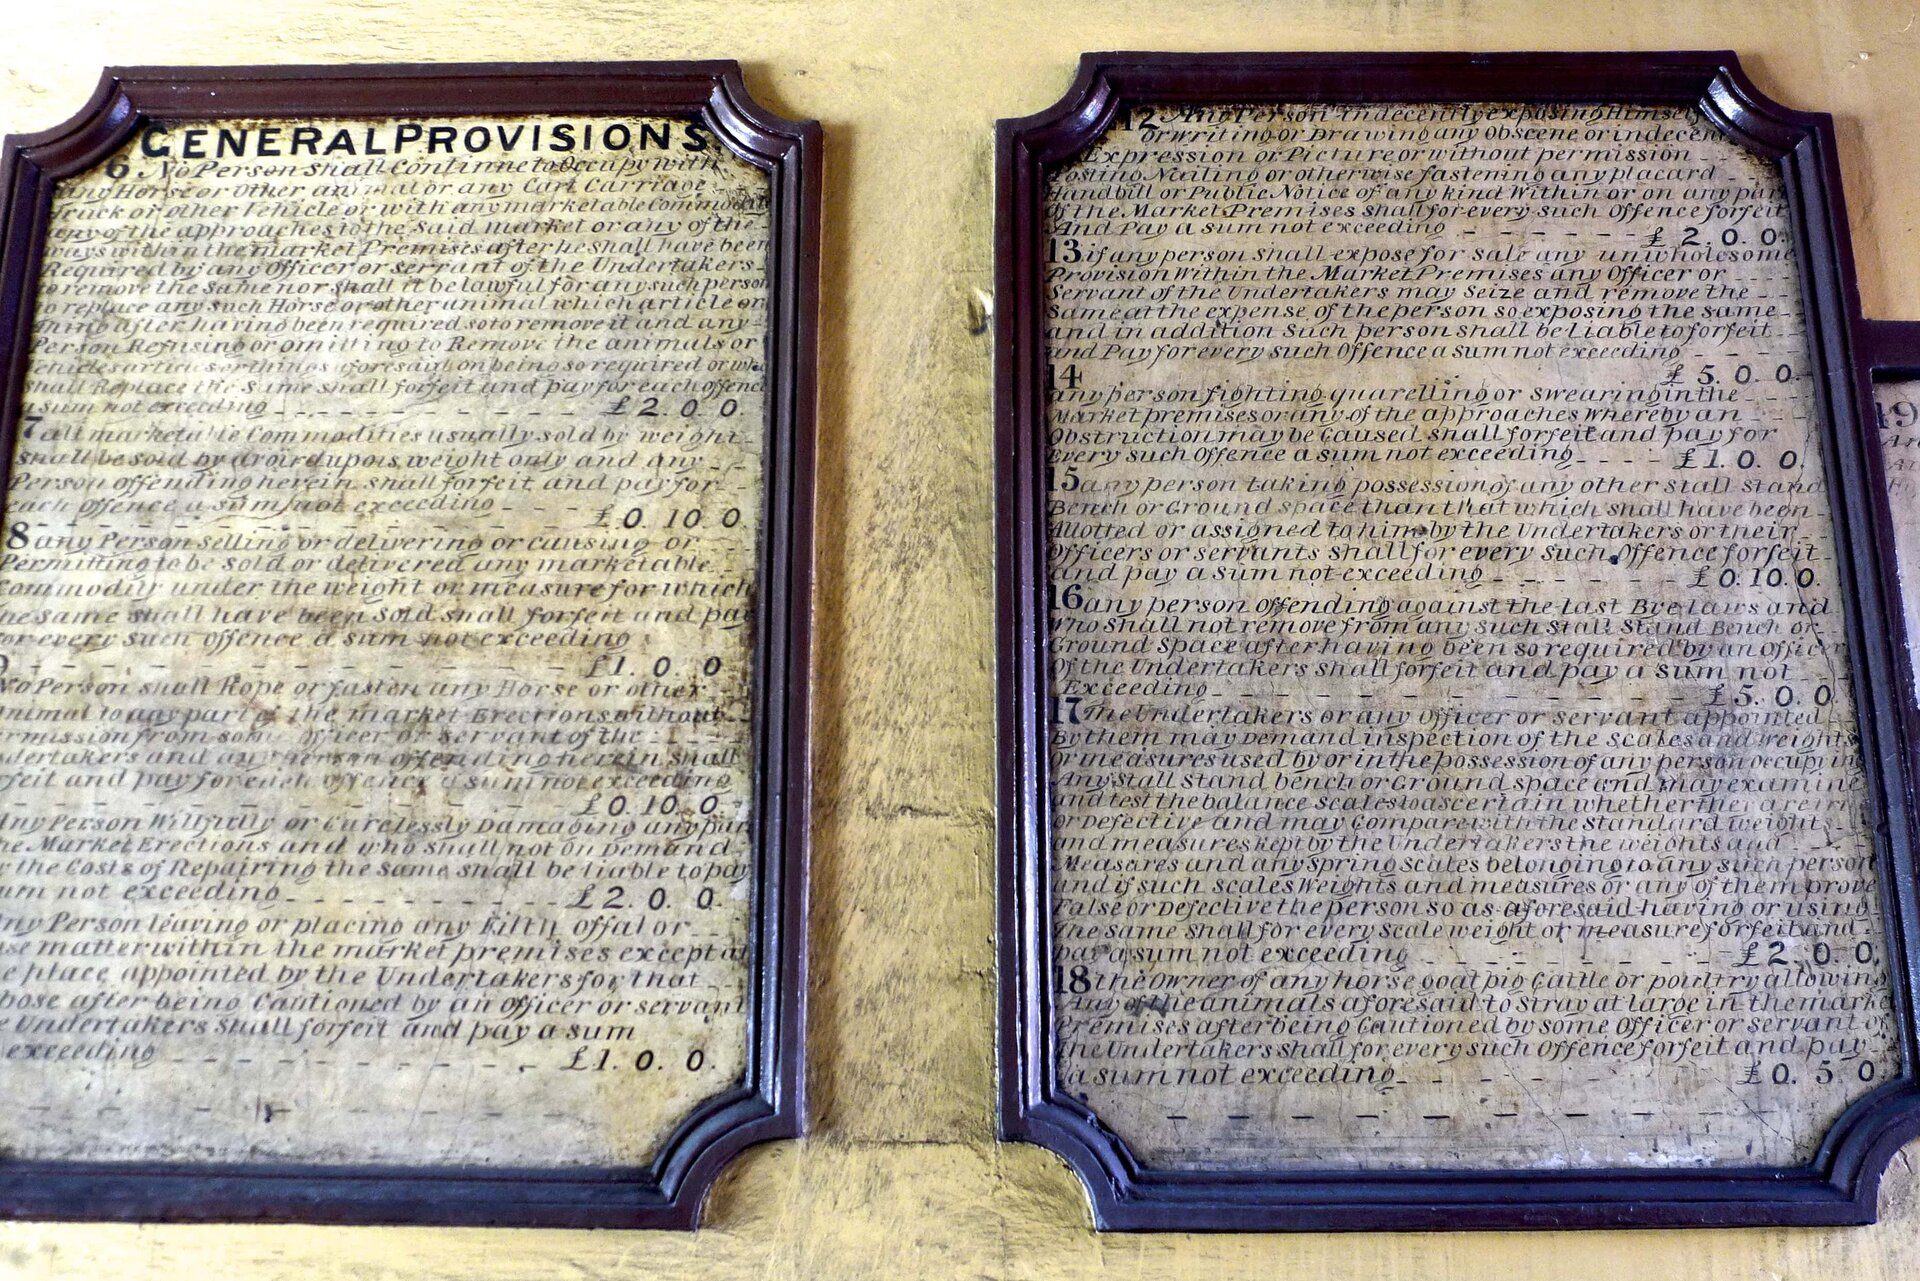 GENERAL PROVISIONS.
6 No Person shall Continue to Occupy with
any Horse or Other animal or any Cart Carriage
Truck or other Vehicle or with any marketable Commodity
any of the approaches to the Said market or any of the
ways within the market Premises after he shall have been
Required by any Officer or servant of the Undertakers
to remove the same nor shall it be lawful for any such person
to replace any such Horse or other animal which article or
thing after having been required so to remove it and any
Person Refusing or omitting to Remove the animals or
Vehicles articles or things aforesaid on being so required or who
shall Replace the Same shall forfeit and pay for each offence
a sum not exceeding £2.0.0.
7 all marketable Commodities usually sold by weight
shall be sold by avoirdupois weight only and any
Person offending herein shall forfeit and pay for
each offence a sum not exceeding
£0.10.0.
8 any Person selling or delivering or causing or
Permitting to be sold or delivered any marketable
Commodity under the weight or measure for which
the same shall have been sold shall forfeit and pay
for every such Offence a sum not exceeding
£1.0.0
No Person shall Rope or fasten any Horse or other
Animal to any part of the market Erections without
rmission from some Officer or Servant of the
dertakers and any Person offending herein shall
rfeit and pay for each offence a sum not exceeding
£0.10.0.
Any Person Willfully or Carelessly Damaging any par
he Market Erections and who shall not on Demand
the Costs of Repairing the same shall be liable to pay
um not exceeding £2.0.0.
Any Person leaving or placing any Filth offal or
se matter within the market premises except at
e place appointed by the Undertakers for that
pose after being Cautioned by an officer or servant
e Undertakers Shall forfeit and pay a sum
exceeding £1.0.0.
12 Any Person Indecently exposing Himself
or Writing or Drawing any Obscene or indecen
Expression or Picture or without permission
Posting Nailing or otherwise fastening any placard
Handbill or Public Notice of any kind Within or on any part
of the Market Premises shall for every such Offence forfeit
And Pay a sum not exceeding £2.0.0.
13 if any person shall expose for sale any unwholesome
Provision Within the Market Premises any Officer or
Servant of the Undertakers may Seize and remove the
Same at the expense of the person so exposing the same
and in addition Such person shall be liable to forfeit
and Pay for every such Offence a sum not exceeding
14 £5.0.0.
any person fighting quarelling or swearing in the
Market premises or any of the approaches Whereby an
Obstruction may be Caused shall forfeit and pay for
Every such Offence a sum not exceeding £1.0.0.
15 any person taking possession of any other stall stand
Bench or Ground space than that which shall have been
Allotted or assigned to him by the Undertakers or their
Officers or servants shall for every such Offence forfeit
and pay a sum not exceeding £0.10.0.
16 any person Offending against the last Bye laws and
Who shall not remove from any such Stall Stand Bench or
Ground Space after having been so required by an Officer
Of the Undertakers shall forfeit and pay a sum not
Exceeding £5.0.0.
17 The Undertakers or any Officer or servant appointed
By them may Demand inspection of the scales and weights
or measures used by or in the possession of any person occupying
Any Stall stand bench or Ground space and may examine
and test the balance scales to ascertain whether they are in
or Defective and may Compare with the standard weights
and measures kept by the Undertakers the weights and
Measures and any spring scales belonging to any such person
and if such scales Weights and measures or any of them prove
False or Defective the person so as aforesaid having or using
The same shall for every scale weight or measure forfeit and
pay a sum not exceeding £2.0.0.
18 the Owner of any horse goat pig Cattle or poultry allowing
Any of the animals aforesaid to Stray at large in the market
Premises after being Cautioned by some Officer or servant of
The Undertakers shall for every such Offence forfeit and pay
a sum not exceeding £0.5.0
19